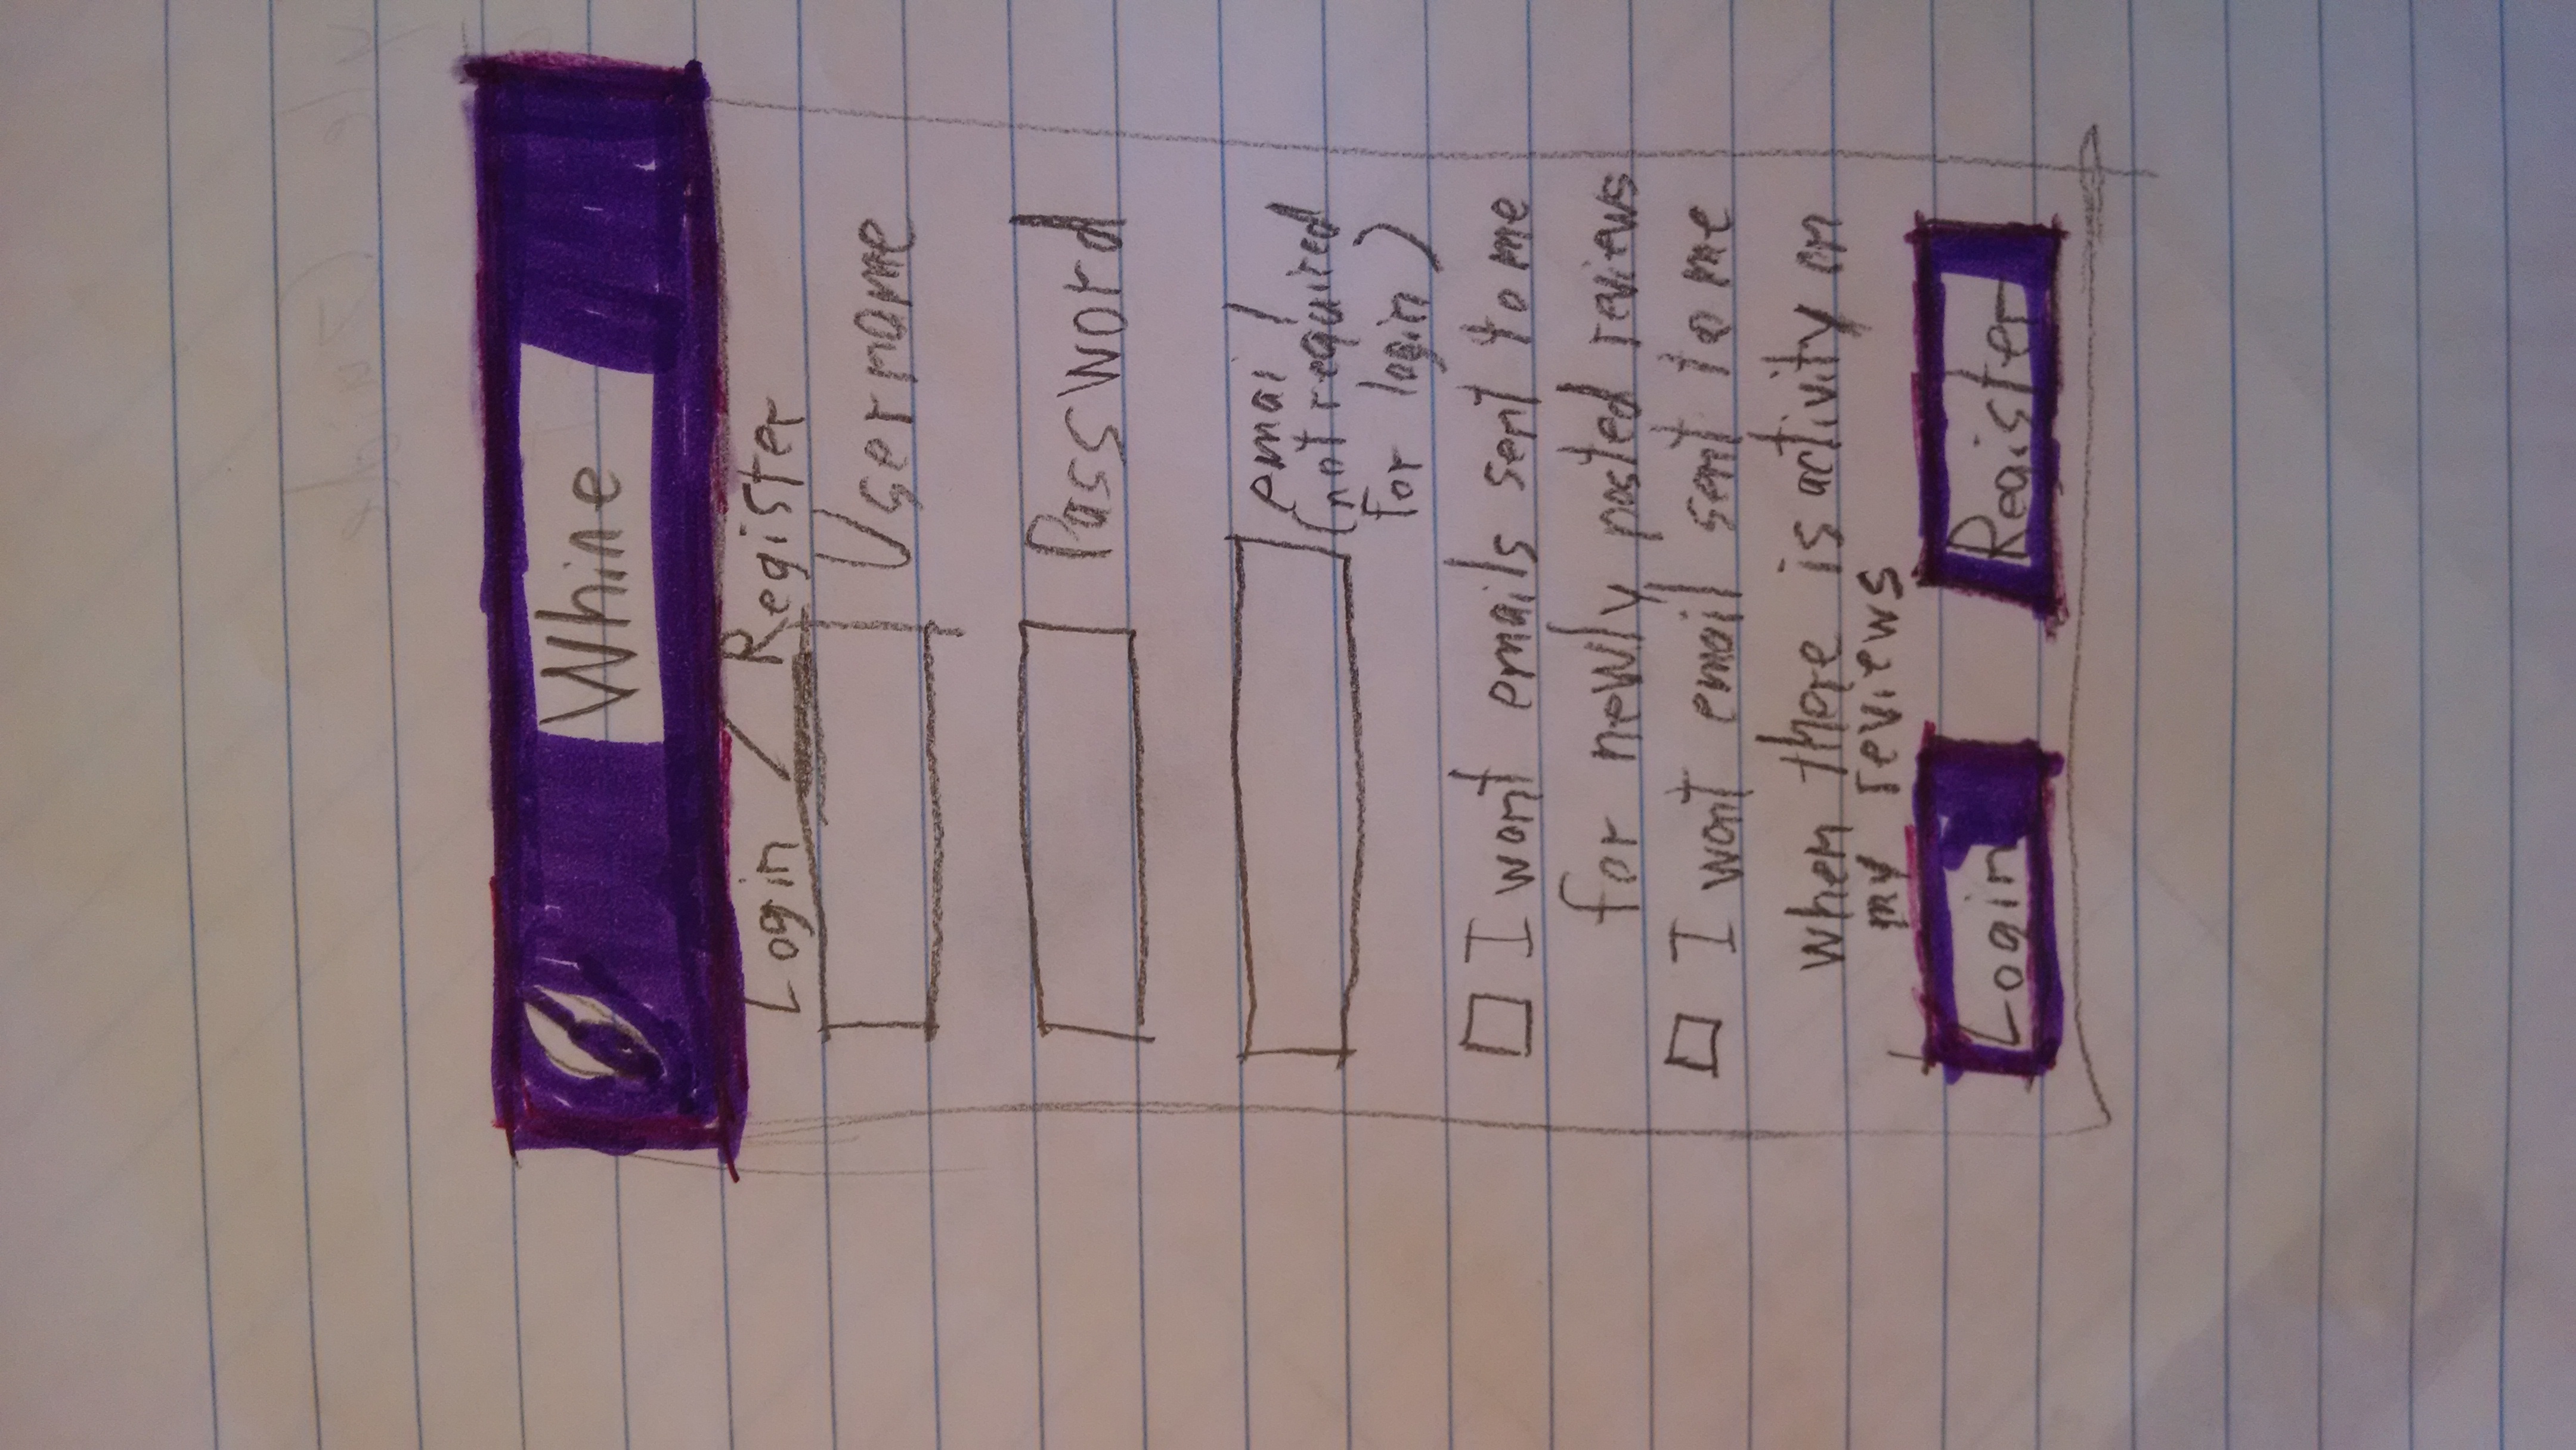 Whine
Login / Register
Username
Password
email
(not required
for login)
I want emails sent to me
for newly posted reviews
I want email sent to me
when there is activity on
my reviews
Login
Register